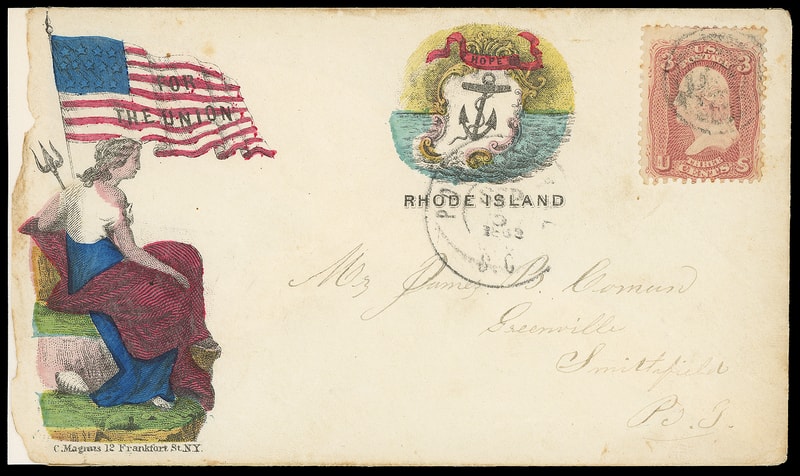 FOR
THE UNION.
HOPE
RHODE ISLAND
3 U.S. 3
POSTAGE
U THREE S
CENTS
PO
1863
S.C
Mr James B. Comun
Greenville
Smithfield
R.I.
C.Magnus 12 Frankfort St.N.Y.